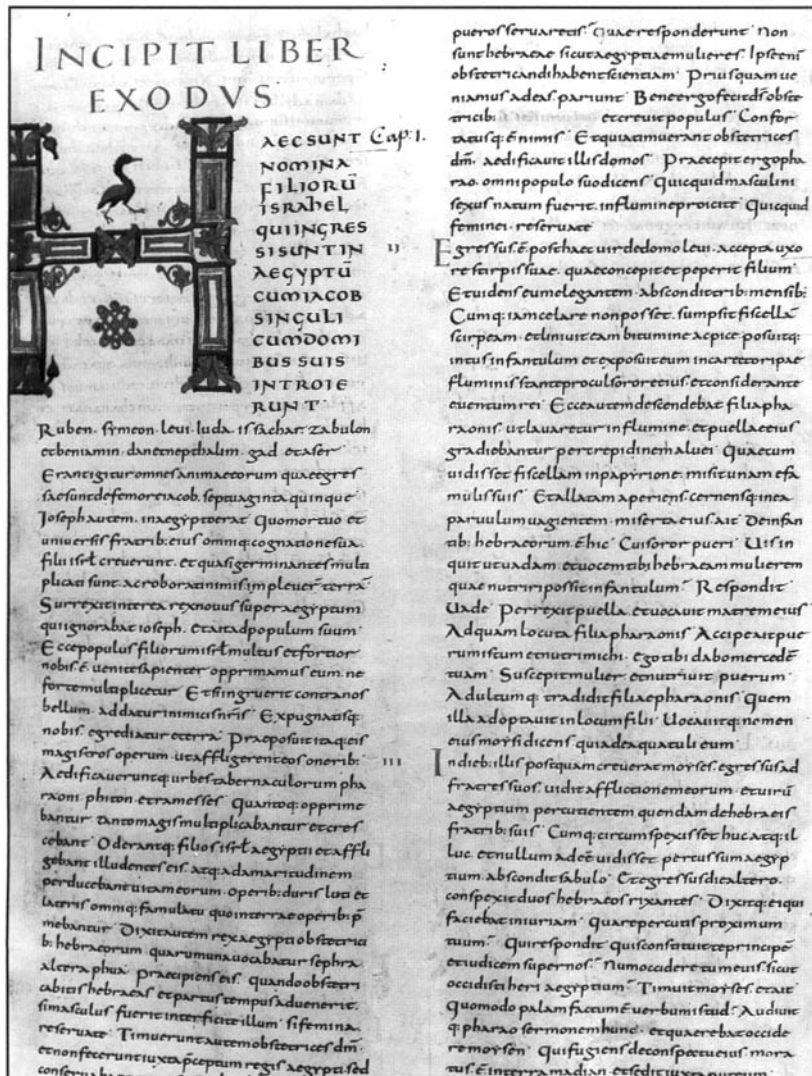 INCIPIT LIBER
EXODVS
AEC SUNT Cap. 1.
NOMINA
FILIORŪ
ISRAHEL
QUI INGRES
SI SUNT IN
AEGYPTŪ
CUM IACOB
SINGULI
CUM DOMI
BUS SUIS
INTROIE
RUNT
Ruben. symeon. levi. iuda. issachar. zabulon
et beniamin. dan et nepthalim. gad et aser
Erant igitur omnes animae eorum quae egres
sae sunt de femore iacob. septuaginta quinque
Ioseph autem. in aegypto erat Quo mortuo et
universis fratrib; eius omniq; cognatione sua.
filii isrł creverunt. et quasi germinantes multi
plicati sunt. ac roborati nimis impleverᷓ terrā
Surrexit interea rex novus super aegyptum
qui ignorabat ioseph. et ait ad populum suum
Ecce populus filiorum isrł multus et fortior
nobis ē. venite sapienter opprimamus eum. ne
forte multiplicetur Et si ingruerit contra nos
bellum. addatur inimicis nr̄is Expugnatisq;
nobis. egrediatur e terra Praeposuit itaq; eis
magistros operum. ut affligerent eos onerib;
Aedificaveruntq; urbes tabernaculorum pha
raoni. phiton. et ramesses Quantoq; opprime
bantur tanto magis multiplicabantur et cres
cebant Oderantq; filios isrł aegyptii et affli
gebant illudentes eis. atq; ad amaritudinem
perducebant vitam eorum. operib; duris luti et
lateris omniq; famulatu quo in terrae operib; p̄
mebantur Dixit autem rex aegypti obstetrici
b; hebraeorum quarum una vocabatur sephra
altera phua praecipiens eis. quando obsteri
cabitis hebraeas et partus tempus advenerit.
si masculus fuerit interficite illum si femina.
reservate Timuerunt autem obstetrices dm̄.
et non fecerunt iuxta p̄ceptum regis aegypti. sed
conservabant
pueros servaretis? Quae responderunt Non
sunt hebraeae sicut aegyptiae mulieres. Ipse eni
obstetricandi habent scientiam Priusquam ve
niamus ad eas. pariunt Bene ergo fecit ds̄ obste
tricib; et crevit populus Confor
tatusq; ē nimis Et quia timuerant obstetrices
dm̄. aedificavit illis domos Praecepit ergo pha
rao. omni populo suo dicens Quicquid masculini
sexus natum fuerit. in flumine proicite Quicquid
feminei. reservate
ij Egressus. ē. post haec vir de domo levi. accepta uxo
re stirpis suae. quae concepit et peperit filium
Et videns eum elegantem. abscondit trib; mensib;
Cumq; iam celare non posset. sumpsit fiscellā
scirpeam. et linivit eam bitumine ac pice. posuitq;
intus infantulum et exposuit eum in carecto ripae
fluminis stante procul sorore eius. et considerante
eventum rei Ecce autem descendebat filia pha
raonis. ut lavaretur in flumine. et puellae eius
gradiebantur per crepidinem alvei Quae cum
vidisset fiscellam in papyrione. misit unam e fa
mulis suis Et allatam aperiens. cernensq; in ea
parvulum vagientem. miserta eius. ait De infan
tib; hebraeorum. ē hic Cui soror pueri Vis in
quit ut vadam. et vocem tibi hebraeam mulierem
quae nutriri possit infantulum? Respondit
Vade Perrexit puella. et vocavit matrem eius
Ad quam locuta filia pharaonis Accipe ait pue
rum istum et nutri michi. ego tibi dabo mercedē
tuam Suscepit mulier. et nutrivit puerum
Adultumq; tradidit filiae pharaonis Quem
illa adoptavit in locum filii Vocavitq; nomen
eius moysi dicens quia de aqua tuli eum
iii In dieb; illis postquam creverat moyses. egressus ad
fratres suos. vidit afflictionem eorum. et virū
aegyptium percutientem quendam de hebraeis
fratrib; suis Cumq; circumspexisset huc atq; il
luc. et nullum adeē vidisset percussum aegyp
tium. abscondit sabulo Et egressus die altero.
conspexit duos hebraeos rixantes Dixitq; ei qui
faciebat iniuriam Quare percutis proximum
tuum? Qui respondit quis constituit te principē
et iudicem super nos? Num occidere tu me vis. sicut
occidisti heri aegyptium? Timuit moyses. et ait
Quomodo palam factum ē verbum istud? Audivit
q; pharao sermonem hunc. et quaerebat occide
re moysen Qui fugiens de conspectu eius mora
tus. ē in terra madian. et sedit iuxta puteum